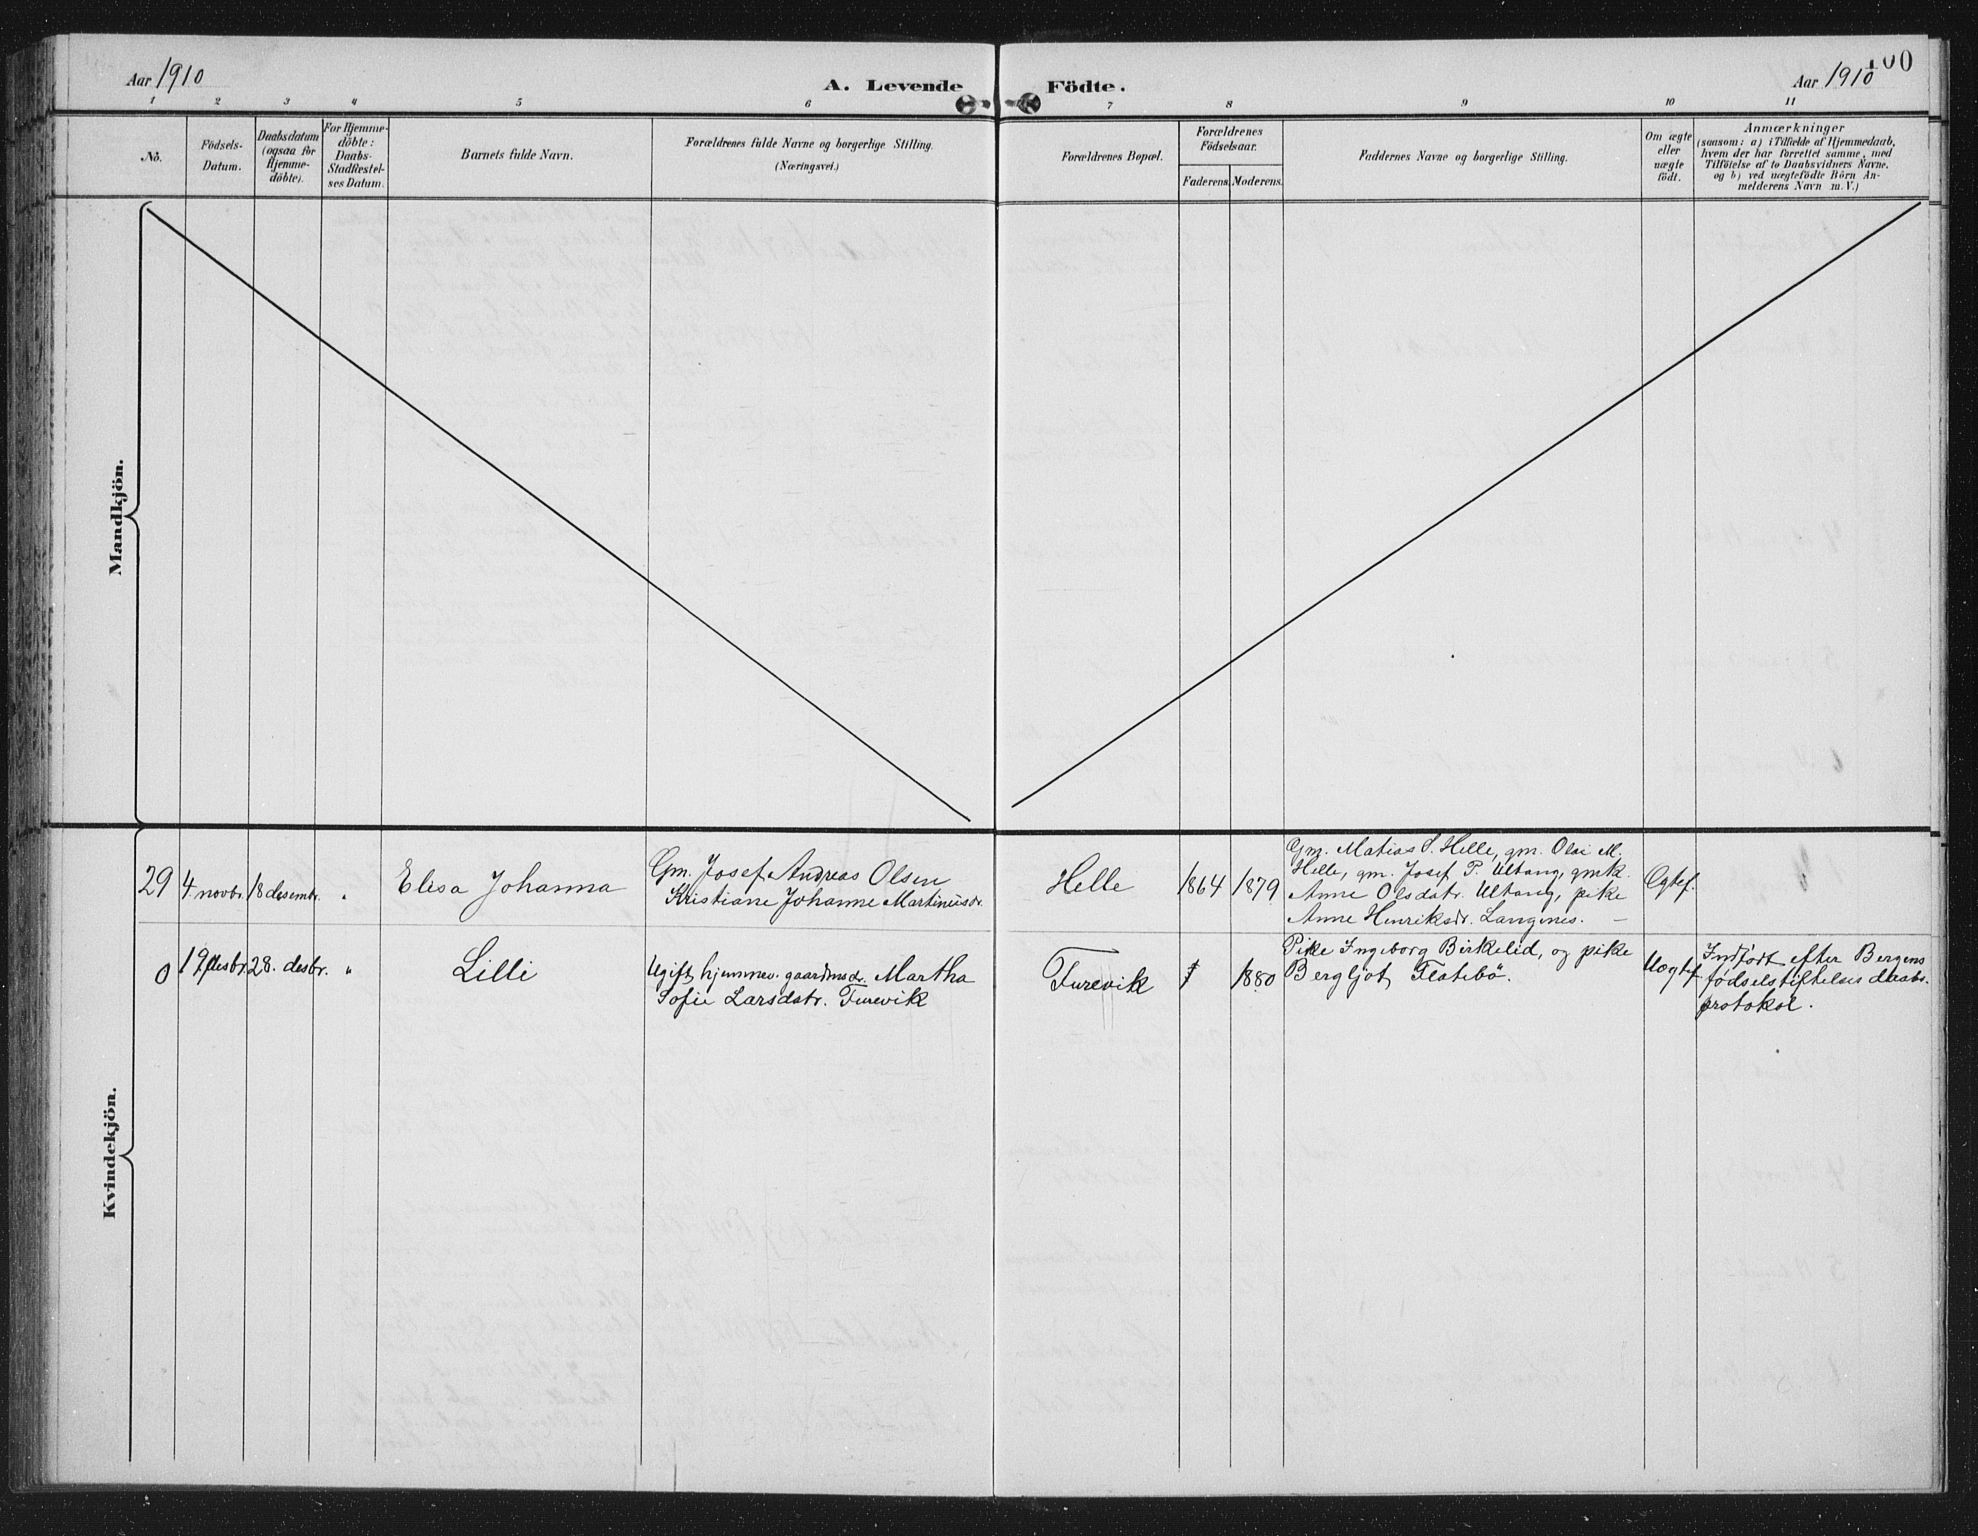 Aar 1910
A. Levende Födte.
Aar 1910
100
1 2 3 4 5 6 7 8 9 10 11
No.
Födsels-
Datum.
Daabsdatum
(ogsaa for
Hjemme-
döbte).
For Hjemme-
döbte:
Daabs-
Stadfæstel-
ses Datum.
Barnets fulde Navn.
Forældrenes fulde Navne og borgerlige Stilling.
(Næringsvei.)
Forældrenes Bopæl.
Forældrenes
Födselsaar.
Faderens.
Moderens.
Faddernes Navne og borgerlige Stilling.
Om ægte
eller
uægte
födt.
Anmærkninger
(saasom: a) i Tilfælde af Hjemmedaab,
hvem der har forrettet samme, med
Tilföielse af to Daabsvidners Navne.
og b) ved uægtefödte Börn An-
melderens Navn m. V.)
Mandkjön.
Kvindekjön.
29
4. novbr.
18 desembr.
"
Elisa Johanna
Gm. Josef Andreas Olsen
Kristiane Johanne Martinusdr.
Helle
1864
1879
Gm. Matias S. Helle, gm. Olai M.
Helle, gm. Josef P. Ultang, gmk.
Anne Olsdatr. Ultang, pike
Anne Henriksdr. Langenes. —
Egtef.
0
19 desbr.
28. desbr.
"
Lilli
Ugift, hjemmev. gaardmsdr. Martha
Sofie Larsdatr. Furevik
Furevik
1880
Pike Ingeborg Birkelid, og pike
Bergljot Flatebö.
Uegtef.
Indfört efter Bergens
födselstiftelses daabs-
protokol.